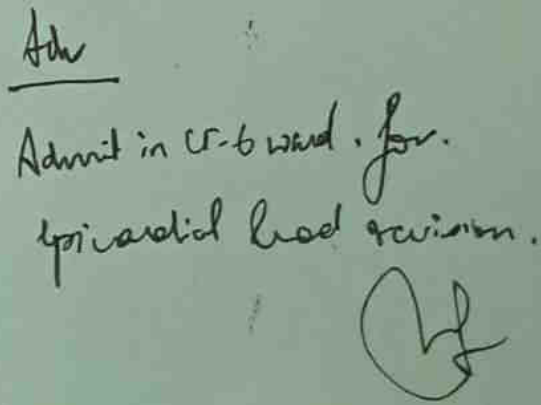 Adv
Admit in CT-6 ward. for.
epicardial lead revision.